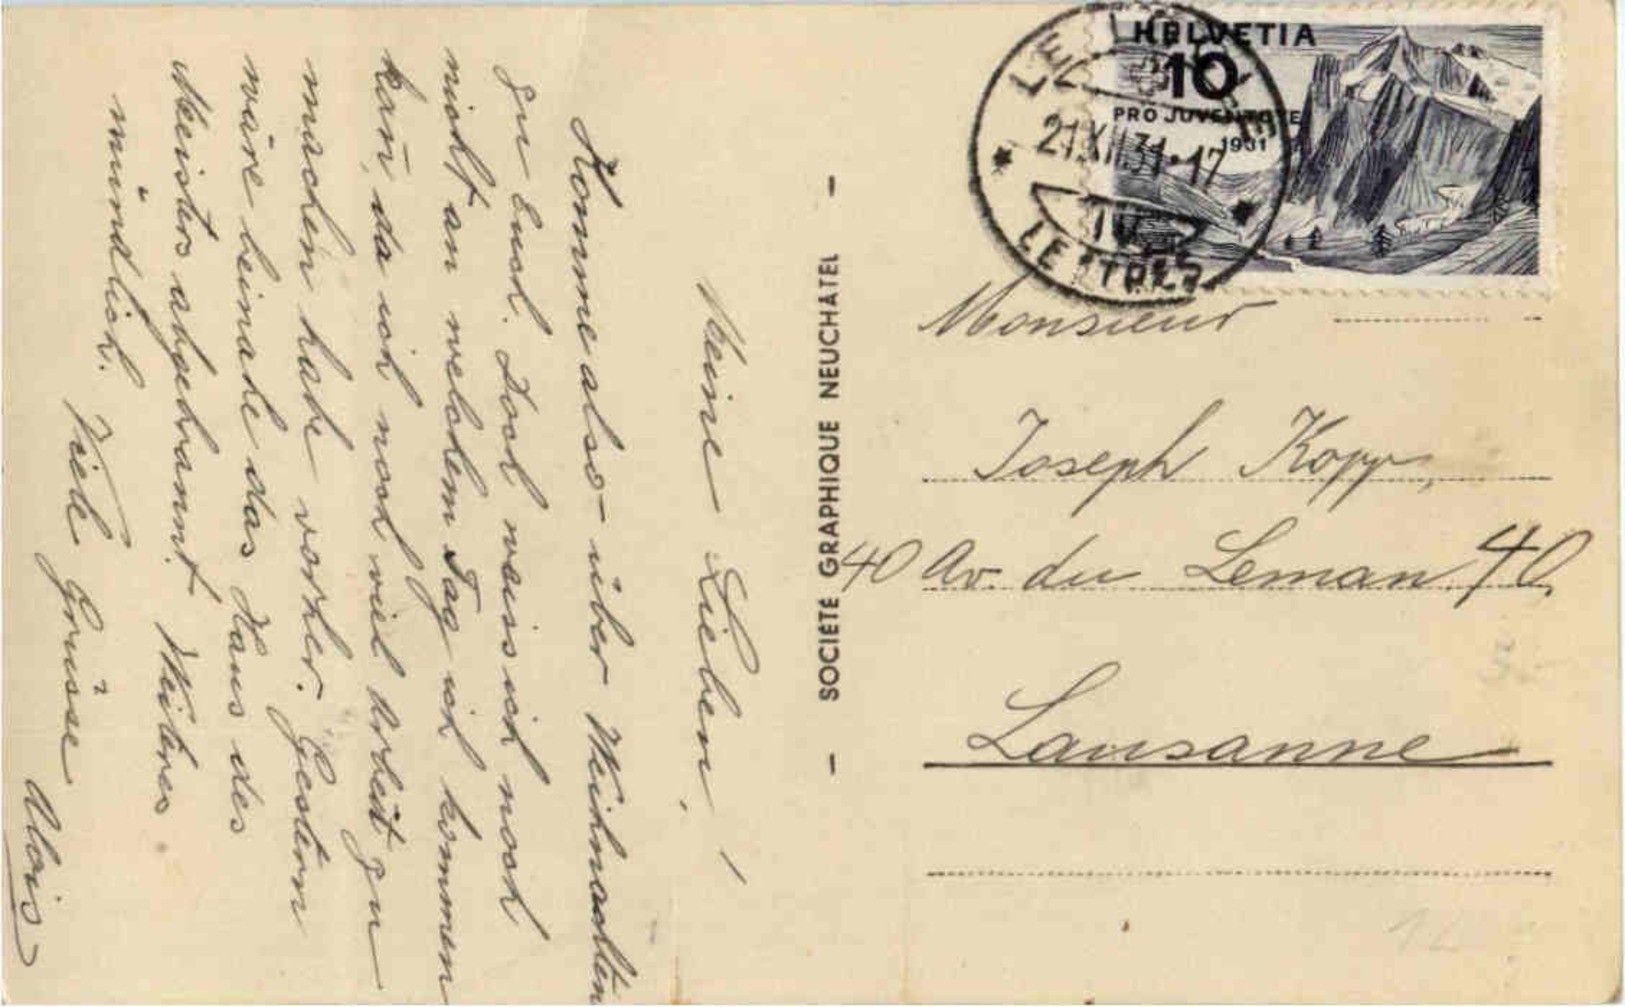 Meine Lieben!
Komme also über Weihnachten
zu Euch. Doch weiss ich noch
nicht an welchem Tag ich kommen
kan̄, da ich noch viel Arbeit zu
machen habe vorher. Gestern
wäre beinahe das Haus des
Meisters abgebrannt. Weiteres
mündlich.
Viele Grüsse
Alois
- SOCIÉTÉ GRAPHIQUE NEUCHÂTEL -
HELVETIA
10
PRO JUVENTUTE
1931
LE LOCLE
21.XII.31.-17
LETTRES
Monsieur
Joseph Kopp,
40 Av. du Leman 40
Lausanne
12